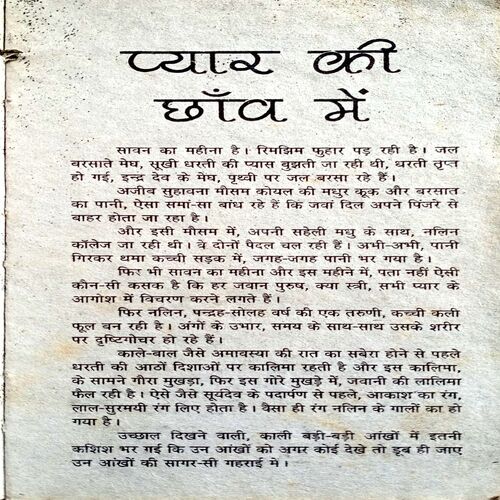 प्यार की
छाँव में
सावन का महीना है। रिमझिम फुहार पड़ रही है। जल
बरसाते मेघ, सूखी धरती की प्यास बुझती जा रही थी, धरती तृप्त
हो गई, इन्द्र देव के मेघ, पृथ्वी पर जल बरसा रहे हैं।
अजीब सुहावना मौसम कोयल की मधुर कूक और बरसात
का पानी, ऐसा समां-सा बांध रहे हैं कि जवां दिल अपने पिंजरे से
बाहर होता जा रहा है।
और इसी मौसम में, अपनी सहेली मधु के साथ, नलिन
कॉलेज जा रही थी। वे दोनों पैदल चल रही हैं। अभी-अभी, पानी
गिरकर थमा कच्ची सड़क में, जगह-जगह पानी भर गया है।
फिर भी सावन का महीना और इस महीने में, पता नहीं ऐसी
कौन-सी कसक है कि हर जवान पुरुष, क्या स्त्री, सभी प्यार के
आगोश में विचरण करने लगते हैं।
फिर नलिन, पन्द्रह-सोलह वर्ष की एक तरुणी, कच्ची कली
फूल बन रही है। अंगों के उभार, समय के साथ-साथ उसके शरीर
पर दृष्टिगोचर हो रहे हैं।
काले-बाल जैसे अमावस्या की रात का सबेरा होने से पहले
धरती की आठों दिशाओं पर कालिमा रहती है और इस कालिमा,
के सामने गौरा मुखड़ा, फिर इस गोरे मुखड़े में, जवानी की लालिमा
फैल रही है। ऐसे जैसे सूर्यदेव के पदार्पण से पहले, आकाश का रंग,
लाल-सुरमयी रंग लिए होता है। वैसा ही रंग नलिन के गालों का हो
गया है।
उच्छाल दिखने वाली, काली बड़ी-बड़ी आंखों में इतनी
कशिश भर गई कि उन आंखों को अगर कोई देखे तो डूब ही जाए
उन आंखों की सागर-सी गहराई मे।